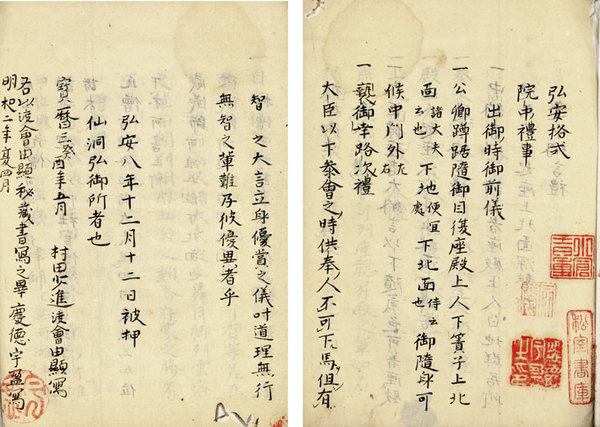 弘安格式
院中禮事
一 出御時御前儀
一 公卿蹲踞隨御目復座殿上人下簀子上北
面諸大夫云也下地便宜處下北面侍云也御隨身可
候中門外左右
一 褻御幸路次禮
大臣以下参會之時供奉人不可下馬但有
智之大言立身優賞之儀叶道理無行
無智之輩難及彼優異者乎
弘安八年十二月十二日被押
仙洞弘御所者也
寶暦三癸酉年五月 村田必進渡會由顯寫
右以渡會由顯秘藏書寫之畢 慶德宇盈寫
明和二年 四月
松室書庫